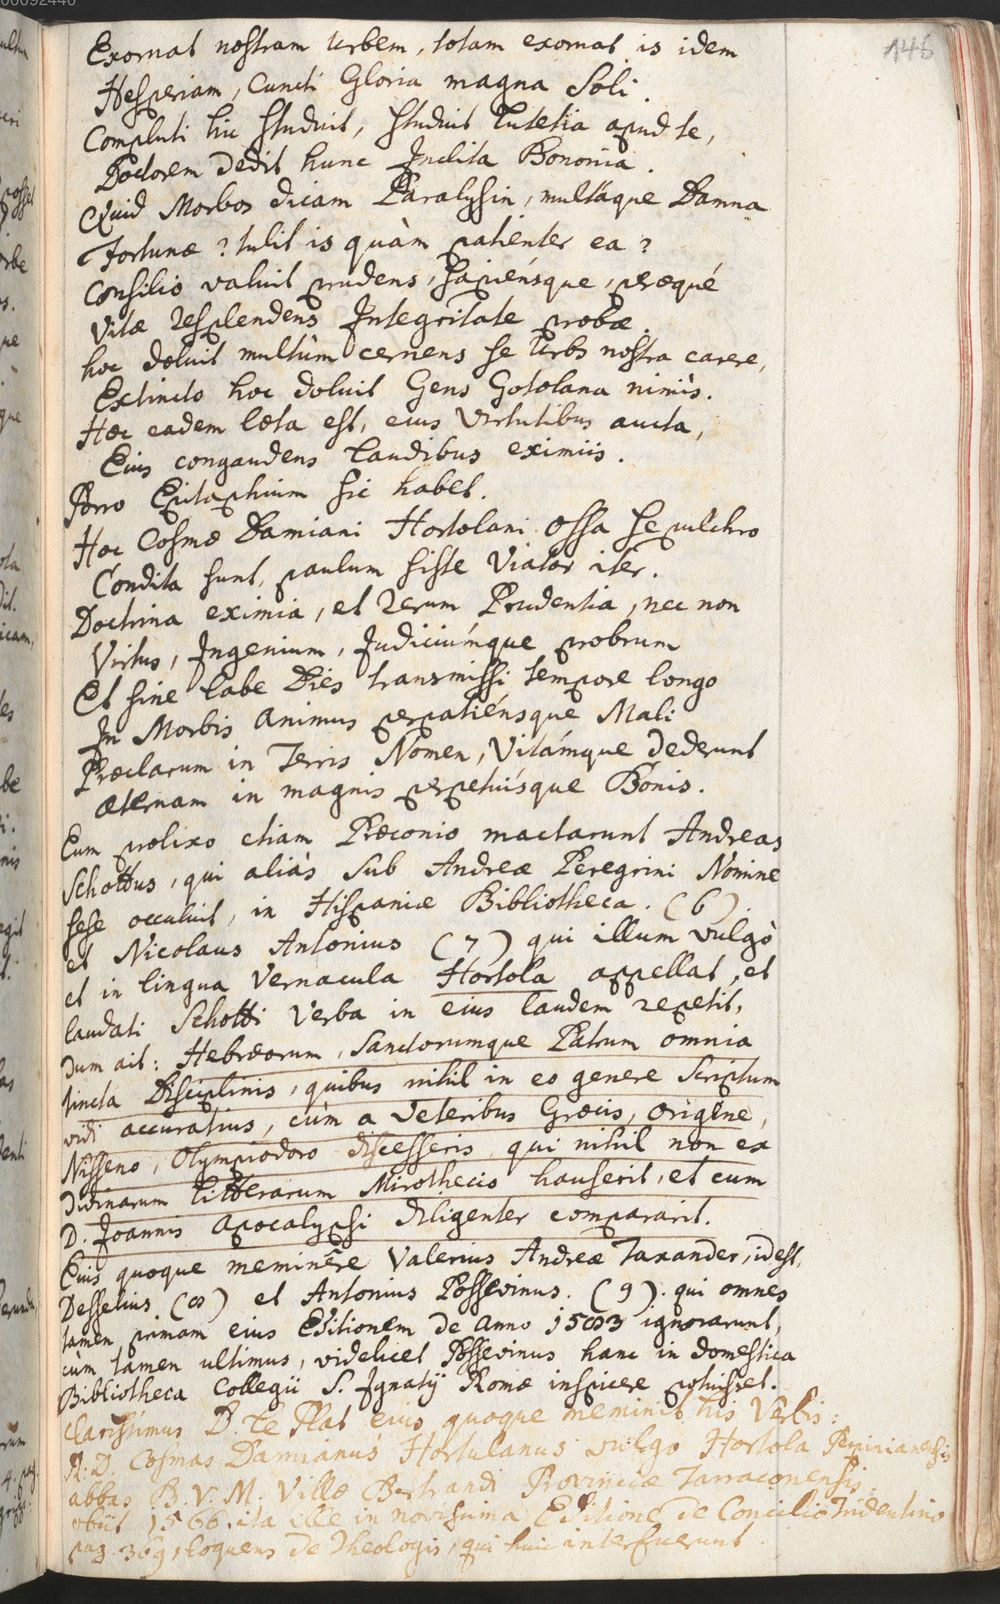 146
Exornat nostram Urbem, totam exornat is idem
Hesperiam, Cuncti Gloria magna Soli.
Compluti hic studuit, studuit Lutetia apud te,
Doctorem dedit hunc Inclita Bononia.
Quid Morbos dicam Paralysin, multáque Damna
Fortunæ? tulit is quàm patienter ea?
Consilio valuit prudens, sapiénsque, præqué
Vitæ resplendens Integritate probæ.
hoc doluit multùm cernens se Urbs nostra carere,
Extincto hoc doluit Gens Gotolana nimis.
Hæc eadem læta est, eius Virtutibus aucta,
Eius congaudens Laudibus eximiis.
Porro Epitaphium sic habet.
Hoc Cosmæ Damiani Hortolani ossa sepulchro
Condita sunt, paulum siste Viator iter.
Doctrina eximia, et rerum Prudentia, nec non
Virtus, Ingenium, Judiciúmque probrum
Et sine labe Dies transmissi tempore longo
In Morbis animus perpatiénsque Mali
Præclarum in Terris Nomen, Vitámque dederunt
æternam in magnis perpetuísque Bonis.
Eum prolixo etiam Præconio mactarunt Andreas
Schottus, qui aliàs sub Andreæ Peregrini Nomine
sese occuluit, in Hispaniæ Bibliotheca. (6).
et Nicolaus Antonius (7) qui illum vulgò
et in lingua Vernacula Hortola appellat, et
laudati Schotti Verba in eius laudem repetit,
dum ait: Hebræorum, Sanctorumque Patrum omnia
tincta Disciplinis, quibus nihil in eo genere scriptum
vidi accuratius, cùm a Veteribus Græcis, origene,
Nisseno, Olympiodoro discesseris, qui nihil non ex
Divinarum litterarum Mirothecio hauserit, et cum
D. Joannis Apocalypsi diligenter compararit.
Eius quoque meminêre Valerius Andreæ Taxander, idest,
Desselius (8) et Antonius Possevinus. (9). qui omnes
tamen primam eius Editionem de Anno 1583 ignorarunt,
cùm tamen ultimus, videlicet Possevinus hanc in domestica
Bibliotheca Collegii S. Ignatij Romæ inspicere potuisset.
Clarissimus D. Le Plat eius quoque meminit his Verbis:
R: D. Cosmas Damianus Hortulanus vulgo Hortola Perpinianensis
abbas B. V. M. Villæ Bertrandi Provinciæ Tarraconensis.
obiit 1566. ita ille in novissima Editione de Concilio Tridentino
pag. 369, loquens de Theologis, qui huic interfuerunt.